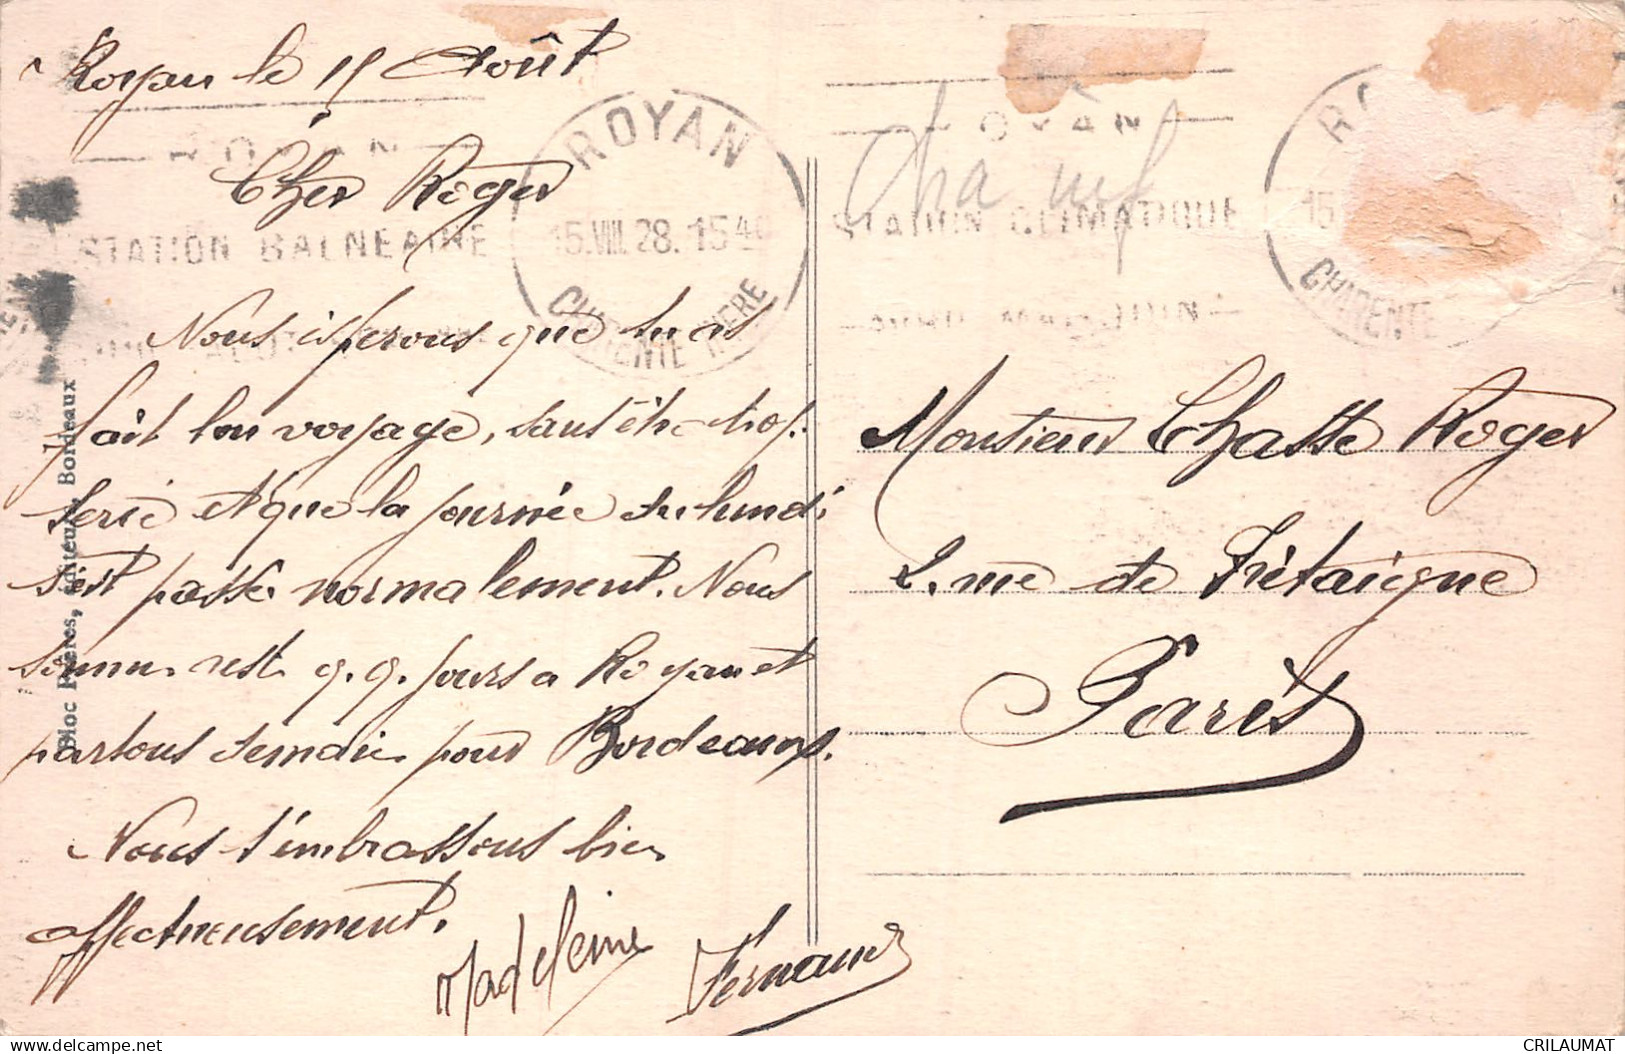 Royan le 15 Août
Cher Roger
Nous espérons que tu as
fait bon voyage, sans être trop
serré et que la journée du lundi
s'est passée normalement. Nous
sommes rest. q.q. jours a Royan et
partons demain pour Bordeaux.
Nous t'embrassons bien
affectueusement.
Madeleine Fernand
Bloc Frères, Editeurs, Bordeaux
ROYAN
STATION BALNEAIRE
ROYAN
15.VIII.28.15 40
CHARENTE INFRE
ROYAN
STATION CLIMATIQUE
CHARENTE
Monsieur Chasse Roger
2. rue de Trétaigne
Paris
CRILAUMAT